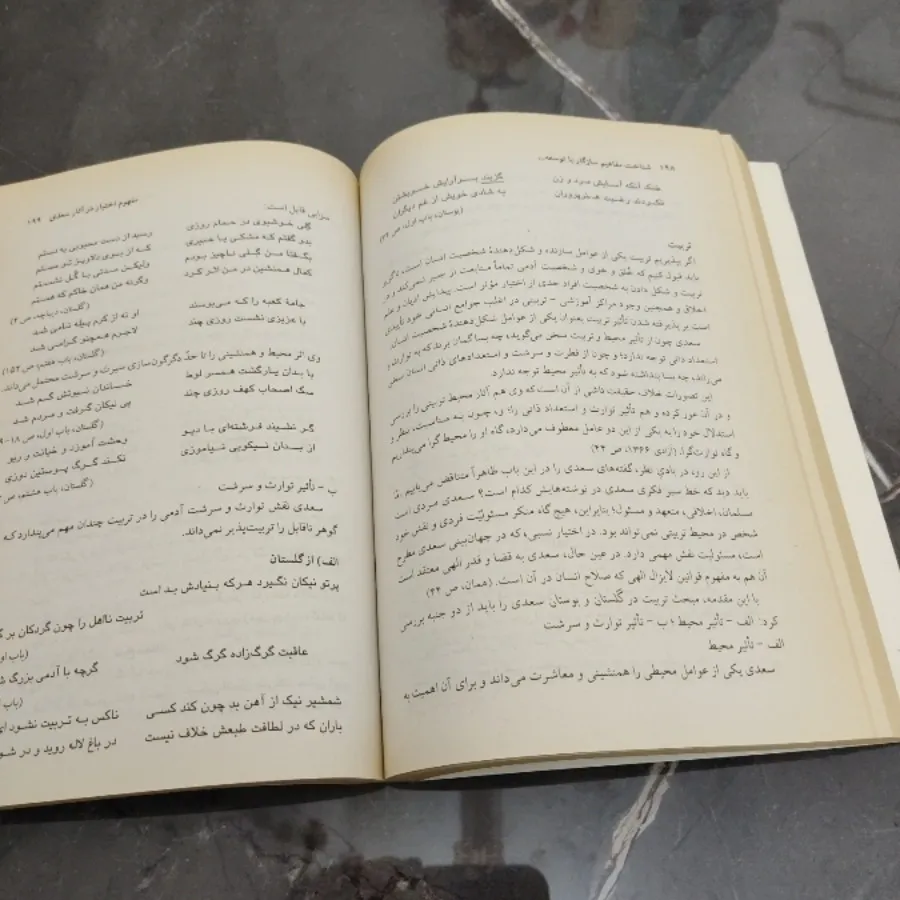 ۱۹۸ شناخت مفاهیم سازگار با توسعه...
خنک آنکه آسایش مرد و زن گزیند بر آرایش خویشتن
نکردند رغبت هنرپروران به شادی خویش از غم دیگران
(بوستان، باب اول، ص
تربیت
اگر بپذیریم تربیت یکی از عوامل سازنده و شکل‌دهندهٔ شخصیت انسان است، ناگزیر
باید قبول کنیم که خُلق و خوی و شخصیت آدمی تماماً متابعت از جبر نمی‌کند و در
تربیت و شکل دادن به شخصیت افراد حدی از اختیار مؤثر است. پیدایش ادیان و علم
اخلاق و همچنین وجود مراکز آموزشی - تربیتی در اغلب جوامع انسانی خود تأییدی
است بر پذیرفته شدن تأثیر تربیت بعنوان یکی از عوامل شکل‌دهندهٔ شخصیت انسان.
سعدی چون از تأثیر محیط و تربیت سخن می‌گوید، چه بسا گمان برند که به توارث و
استعداد ذاتی توجه ندارد؛ و چون از فطرت و سرشت و استعدادهای ذاتی انسان سخن
می‌راند، چه بسا پنداشته شود که به تأثیر محیط توجه ندارد.
این تصورات خلاف حقیقت ناشی از آن است که وی هم آثار محیط تربیتی را بررسی
و در آن غور کرده و هم تأثیر توارث و استعداد ذاتی را؛ و، چون به مناسبت، نظر و
استدلال خود را به یکی از این دو عامل معطوف می‌دارد، گاه او را محیط گرا می‌یابدیم
و گاه توارث‌گرا. (آزادی ۱۳۶۶، ص ۴۴)
از این رو، در بادیِ نظر، گفته‌های سعدی را در این باب ظاهراً متناقض می‌یابیم.
باید دید که خط سیر فکری سعدی در نوشته‌هایش کدام است؟ سعدی مردی است
مسلمان، اخلاقی، متعهد و مسئول؛ بنابراین، هیچ گاه منکر مسئولیّت فردی و نقش خود
شخص در محیط تربیتی نمی تواند بود. در اختیار نسبی، که در جهان‌بینی سعدی مطرح
است، مسئولیت نقش مهمی دارد. در عین حال، سعدی به قضا و قدر الهی معتقد است
آن هم به مفهوم قوانین لایزال الهی که صلاح انسان در آن است. (همان، ص ۴۴)
با این مقدمه، مبحث تربیت در گلستان و بوستان سعدی را باید از دو جنبه بررسی
کرد: الف - تأثیر محیط؛ ب - تأثیر توارث و سرشت
الف - تأثیر محیط
سعدی یکی از عوامل محیطی را همنشینی و معاشرت می‌داند و برای آن اهمیت به
مفهوم اختیار در آثار سعدی ۱۹۹
سزایی قایل است:
گِلی خوشبوی در حمام روزی رسید از دست محبوبی به دستم
بدو گفتم که مشکی یا عبیری که از بوی دلاویز تو مستم
بگفتا من گِلی ناچیز بودم ولیکن مدتی با گُل نشستم
کمال همنشین در من اثر کرد وگرنه من همان خاکم که هستم
(گلستان، دیباچه، ص ۴)
جامهٔ کعبه را که می‌بوسند او نه از کرم پیله نامی شد
با عزیزی نشست روزی چند لاجرم همچنو گرامی شد
(گلستان، باب هفتم، ص ۱۵۲)
وی اثر محیط و همنشینی را تا حدّ دگرگون‌سازی سیرت و سرشت محتمل می‌داند.
با بدان یار گشت همسر لوط خاندان نبوتش گم شد
سگ اصحاب کهف روزی چند پی نیکان گرفت و مردم شد
(گلستان، باب اول، ص ۱۸-
گر نشیند فرشته‌ای با دیو وحشت آموزد و خیانت و ریو
از بدان نیکویی نیاموزی نکند گرگ پوستین دوزی
(گلستان، باب هشتم، ص
ب - تأثیر توارث و سرشت
سعدی نقش توارث و سرشت آدمی را در تربیت چندان مهم می‌پندارد که
گوهر ناقابل را تربیت‌پذیر نمی‌داند.
الف) از گلستان
پرتو نیکان نگیرد هرکه بنیادش بد است
تربیت نااهل را چون گردکان بر
(باب
عاقبت گرگ‌زاده گرگ شود گرچه با آدمی بزرگ
(باب
شمشیر نیک از آهن بد چون کند کسی ناکس به تربیت نشود
باران که در لطافت طبعش خلاف نیست در باغ لاله روید و در